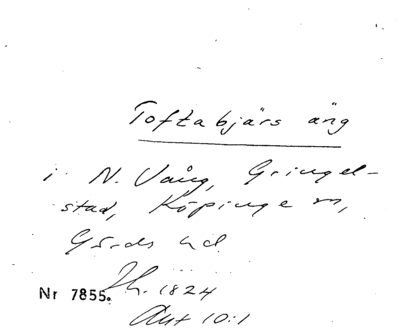 Toftabjärs äng
i N. Vång, Gringel-
stad, Köpinge sn,
Gärds hd
Jh. 1824
Nr 7855.
Akt 10:1